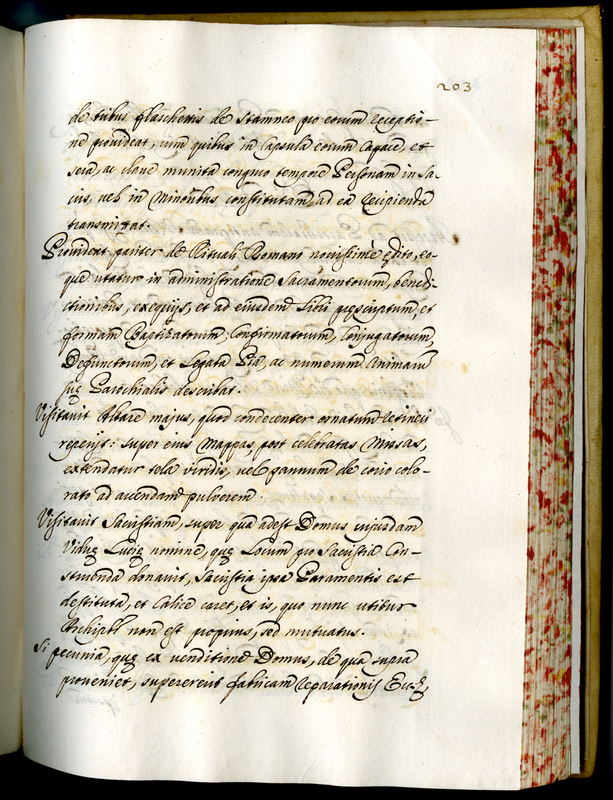 203
de tribus flaschettis de stamneo pro eorum receptio-
ne provideat, cum quibus in Capsula eorum capace, et
sera, ac clave munita congruo tempore Personam in Sa-
cris, vel in minoribus constitutam ad ea recipienda
transmittat.
Provideat pariter de Rituali Romano novissime edito, eo-
que utatur in administratione Sacramentorum, benedi-
ctionibus, exequijs, et ad eiusdem libri prescriptum, et
formam Baptizatorum, Confirmatorum, Conjugatorum,
Defunctorum, et Legata Pia, ac numerum Animarum
suę Parochialis describat.
Visitavit Altare majus, quod condecenter ornatum retineri
reperijt: super eius Mappas, post celebratas Missas,
extendatur tela viridis, vel pannum de corio colo-
rato ad arcendam pulverem.
Visitavit Sacristiam, super qua adest Domus cujusdam
Viduę Lucię nomine, quę Locum pro Sacristia Con-
struenda donavit, Sacristia ipsa Paramentis est
destituta, et Calice caret, et is, quo nunc utitur
Archipbr non est proprius, sed mutuatus.
Si pecunia, quę ex venditione Domus, de qua supra
proveniet, supererit fabricam reparationis Eccl.ę,